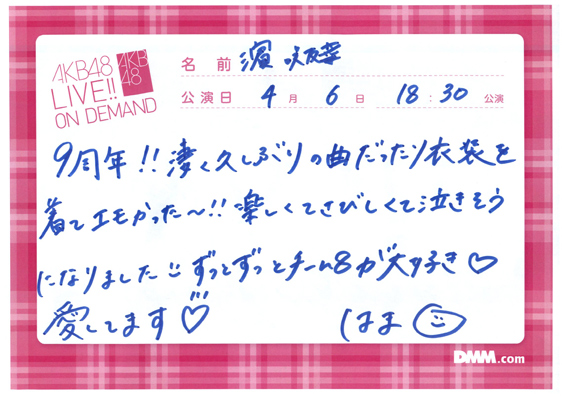 AKB48
LIVE!!
ON DEMAND
AKB
48
名前 濵咲友菜
公演日 4月6日 18:30公演
9周年!!凄く久しぶりの曲だったり衣装を
着てエモかった〜!!楽しくてさびしくて泣きそう
になりました ずっとずっとチーム8が大好き♡
愛してます!!!♡ はま
DMM.com